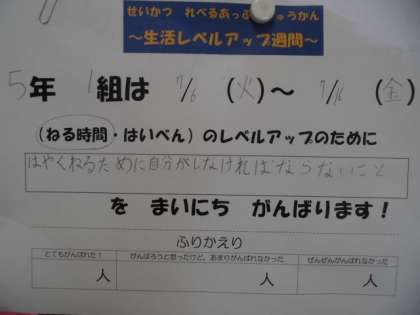 せいかつ れべるあっぷしゅうかん
～生活レベルアップ週間～
5年 1組は 7/6 (火)～ 7/16 (金)
(ねる時間・はいべん) のレベルアップのために
はやくねるために自分がしなければならないこと
を まいにち がんばります！
ふりかえり
とてもがんばれた！ がんばろうと思ったけど、あまりがんばれなかった ぜんぜんがんばれなかった
人 人 人